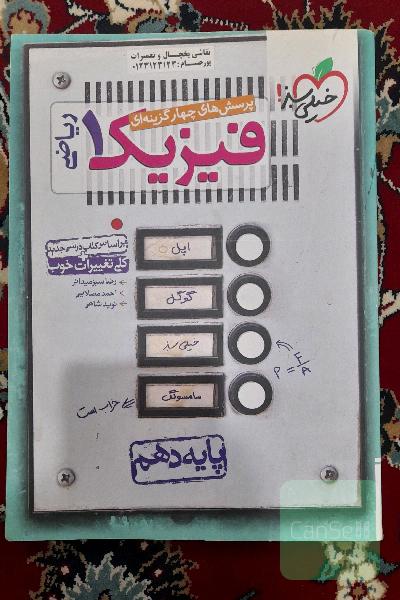 نقاشی یخچال و تعمیرات
پورحسام: ۰۱۲۳۱۲۳۱۲۳
خیلی سبز!
پرسش‌های چهارگزینه‌ای
فیزیک ۱
ریاضی
براساس کتاب درسی جدید
کلی تغییرات خوب
رضا سبزمیدانی
احمد مصلایی
نوید شاهی
اپل
گوگل
خیلی سبز
سامسونگ
خراب است
پایه دهم
CanSell